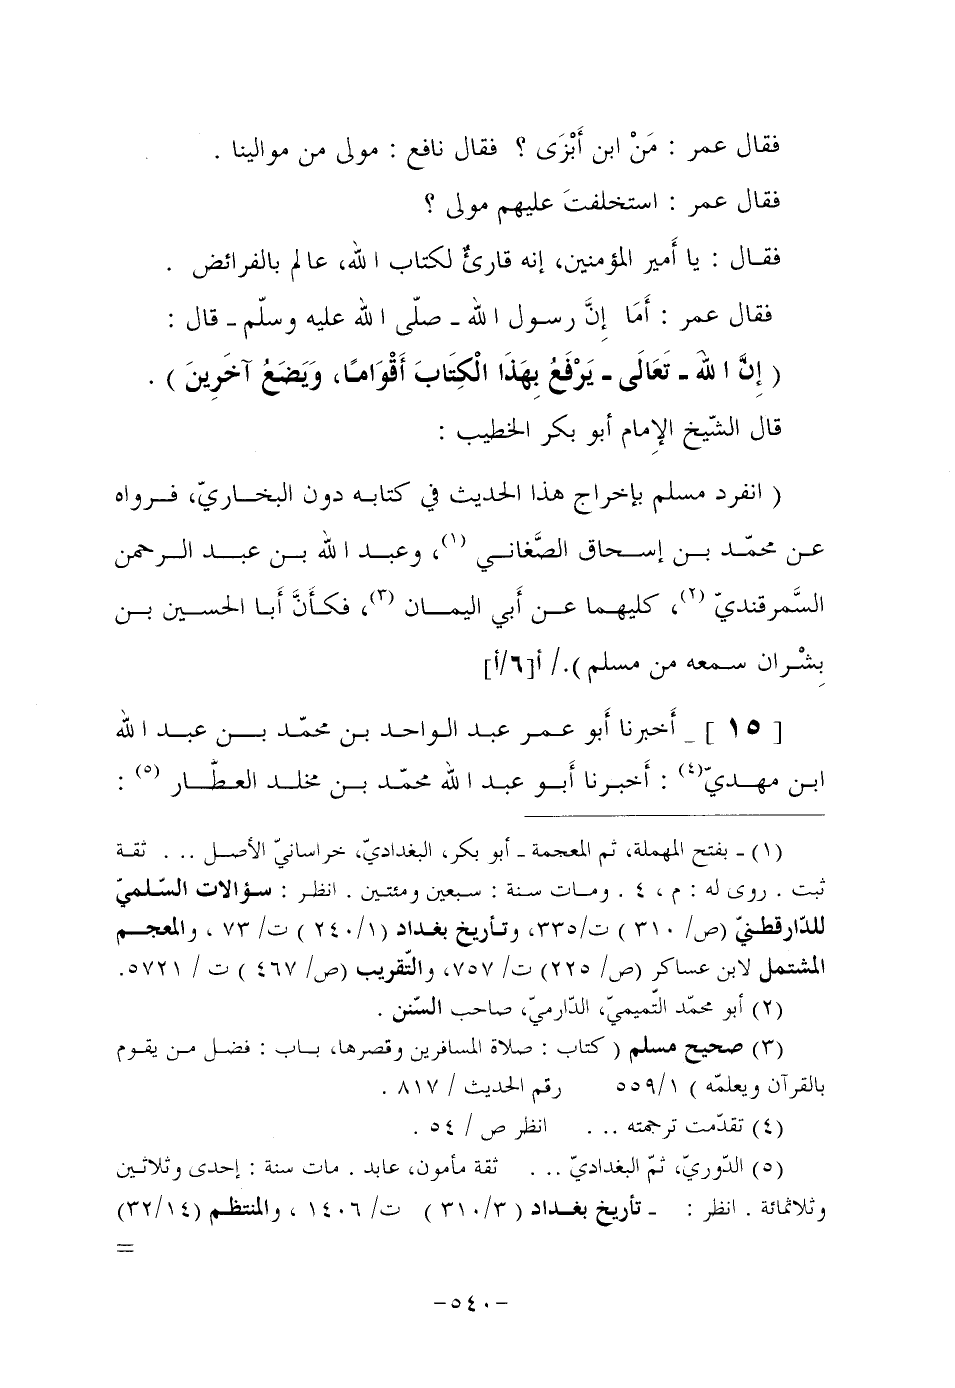 فقال عمر : مَنْ ابن أَبْزَى ؟ فقال نافع : مولى من موالينا .
فقال عمر : استخلفتَ عليهم مولى ؟
فقال : يا أمير المؤمنين، إنه قارئٌ لكتاب الله، عالم بالفرائض .
فقال عمر : أَمَا إنَّ رسول الله ـ صلّى الله عليه وسلّم ـ قال :
( إنَّ اللهَ ـ تَعَالَى ـ يَرْفَعُ بِهَذَا الْكِتَابَ أَقْوَامًا، وَيَضَعُ آخَرِينَ ) .
قال الشّيخ الإمام أبو بكر الخطيب :
( انفرد مسلم بإخراج هذا الحديث في كتابه دون البخاريّ، فرواه
عن محمّد بن إسحاق الصَّغاني (١)، وعبد الله بن عبد الرحمن
السَّمرقنديّ (٢)، كليهما عن أبي اليمان (٣)، فكأنَّ أبا الحسين بن
بِشْران سمعه من مسلم )./ أ[٦/أ]
[ ١٥ ] _ أخبرنا أبو عمر عبد الواحد بن محمّد بن عبد الله
ابن مهديّ(٤) : أخبرنا أبو عبد الله محمّد بن مخلد العطّار (٥) :
(١) ـ بفتح المهملة، ثم المعجمة ـ أبو بكر، البغداديّ، خراسانيّ الأصل ... ثقة
ثبت . روى له : م ، ٤ . ومات سنة : سبعين ومئتين . انظر : سؤالات السّلميّ
للدّارقطنيّ (ص/ ٣١٠ ) ت/٣٣٥، وتأريخ بغداد (٢٤٠/١ ) ت/ ٧٣ ، والمعجم
المشتمل لابن عساكر (ص/ ٢٢٥) ت/ ٧٥٧، والتّقريب (ص/ ٤٦٧ ) ت / ٥٧٢١.
(٢) أبو محمّد التّميميّ، الدّارميّ، صاحب السّنن .
(٣) صحيح مسلم ( كتاب : صلاة المسافرين وقصرها، باب : فضل من يقوم
بالقرآن ويعلمّه ) ٥٥٩/١ رقم الحديث / ٨١٧ .
(٤) تقدّمت ترجمته ... انظر ص / ٥٤ .
(٥) الدّوريّ، ثمّ البغداديّ ... ثقة مأمون، عابد . مات سنة : إحدى وثلاثين
وثلاثمائة . انظر : ـ تأريخ بغداد ( ٣١٠/٣ ) ت/ ١٤٠٦ ، والمنتظم (٣٢/١٤)
=
-٥٤٠-